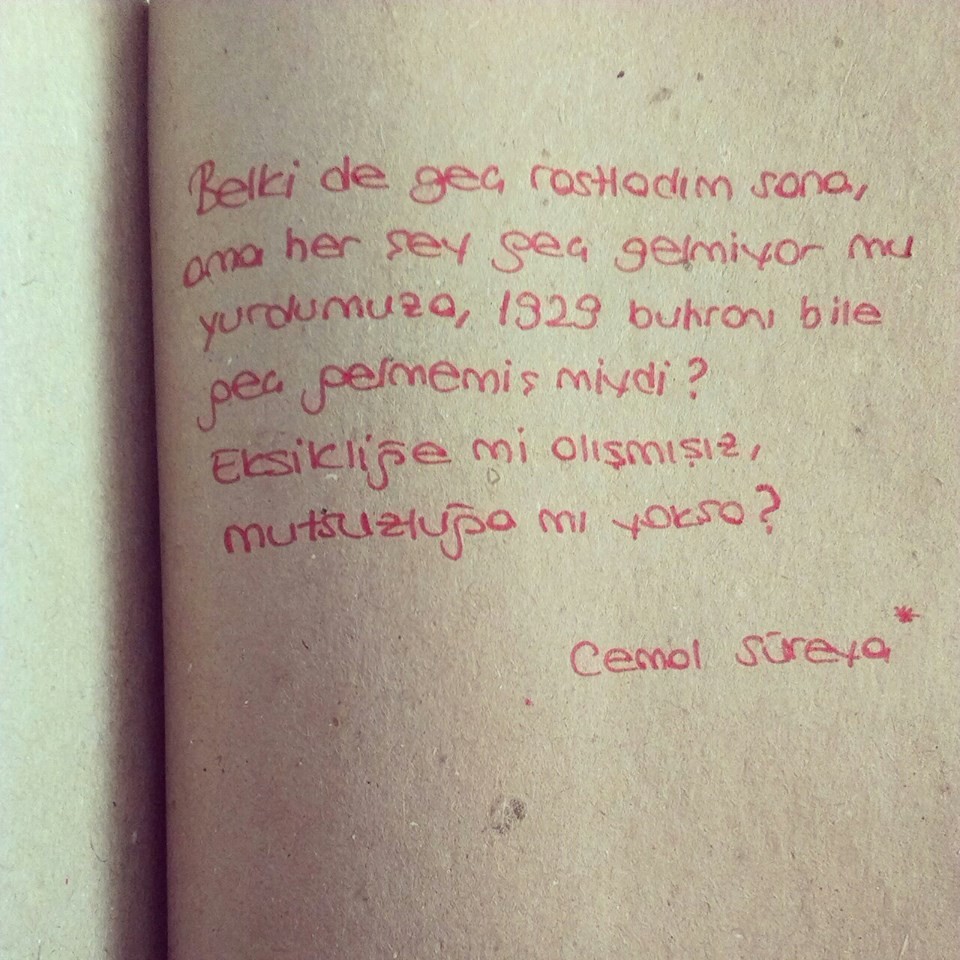 Belki de geç rastladım sana,
ama her şey geç gelmiyor mu
yurdumuza, 1929 buhranı bile
geç gelmemiş miydi?
Eksikliğe mi alışmışız,
mutsuzluğa mı yoksa?
Cemal Süreya*